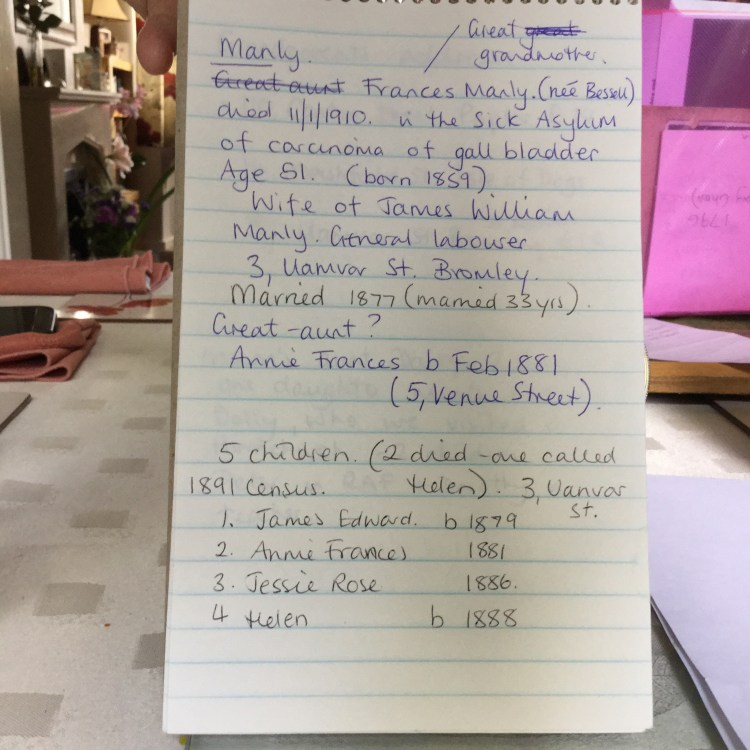 Great great
Manly. / grandmother.
Great aunt Frances Manly. (neé Bessell)
died 11/1/1910. in the Sick Asylum
of carcinoma of gall bladder
Age 51. (born 1859)
Wife of James William
Manly. General labourer
3, Uamvar St. Bromley.
Married 1877 (married 33 yrs).
Great-aunt?
Annie Frances b Feb 1881
(5, Venue Street).
5 children. (2 died - one called
1891 Census. Helen). 3, Uanvar
St.
1. James Edward. b 1879
2. Annie Frances 1881
3. Jessie Rose 1886.
4 Helen b 1888